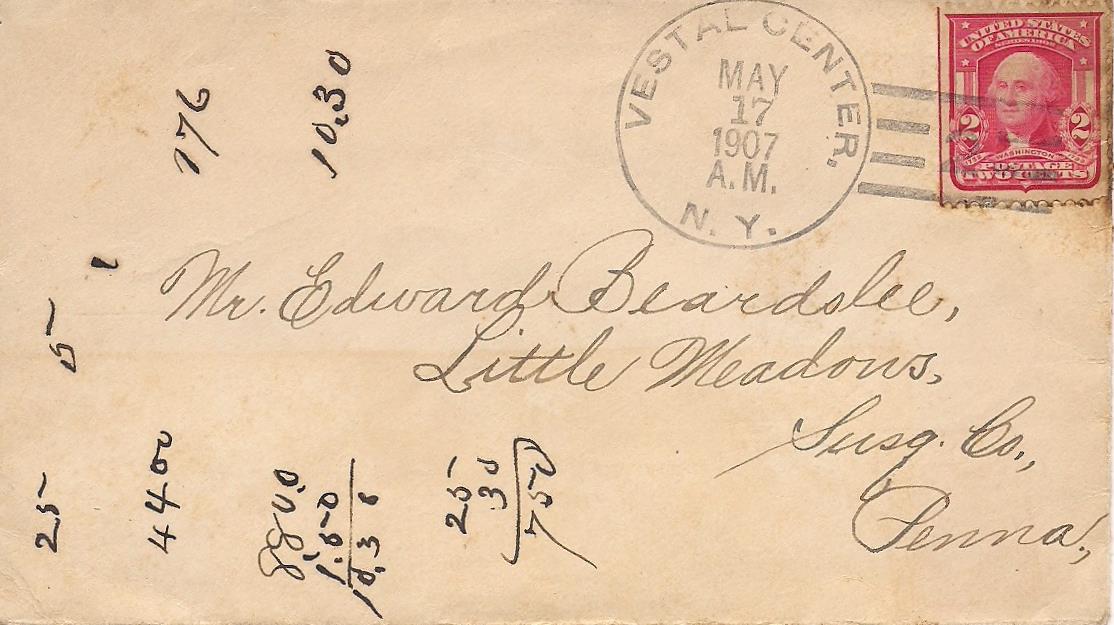 VESTAL CENTER,
MAY
17
1907
A.M.
N. Y.
UNITED STATES
OF AMERICA
2 2
WASHINGTON
POSTAGE
TWO CENTS
Mr. Edward Beardslee,
Little Meadows,
Susq. Co.,
Penna.,
176
10.30
5
25
4400
1.50
10.3
25
30
750